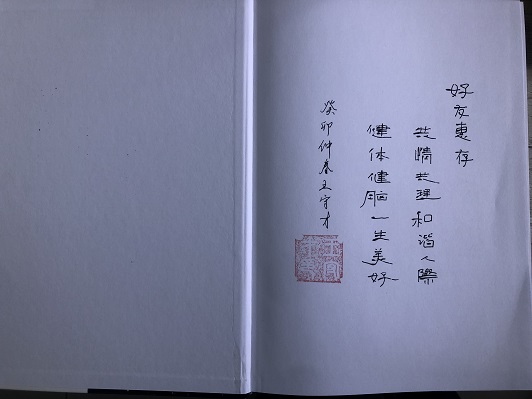 好友惠存
共情共理和谐人際
健体健脑一生美好
癸卯仲春王守才